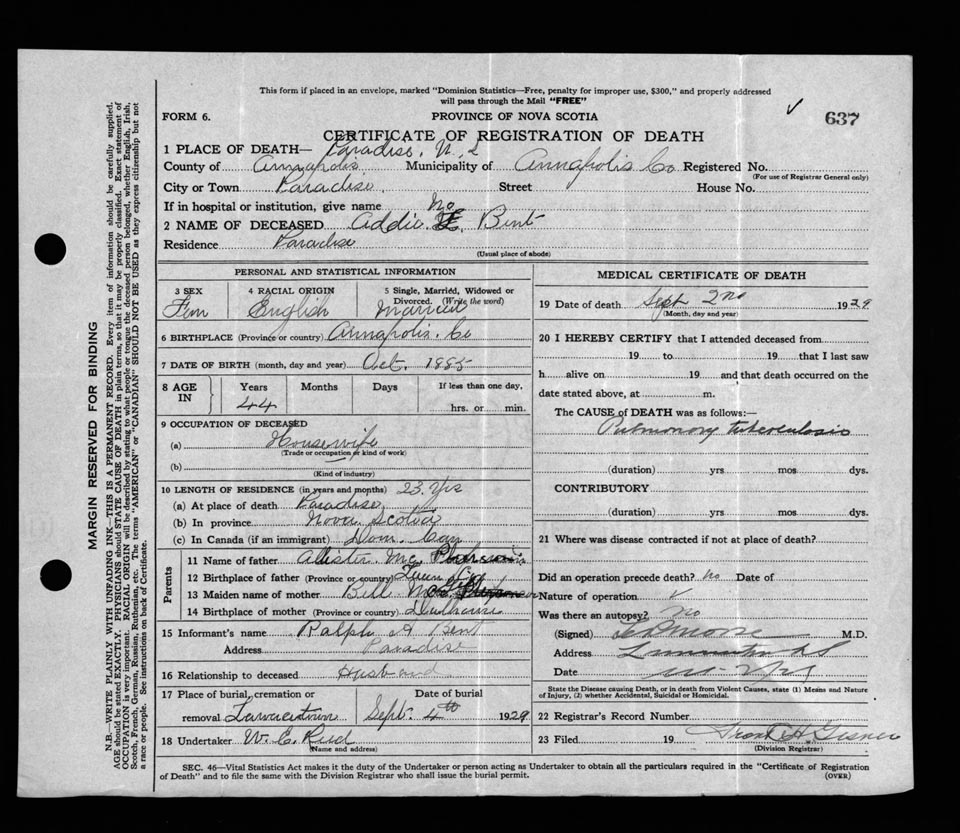 This form if placed in an envelope, marked "Dominion Statistics—Free, penalty for improper use, $300," and properly addressed
will pass through the Mail "FREE"
FORM 6.
PROVINCE OF NOVA SCOTIA
637
CERTIFICATE OF REGISTRATION OF DEATH
1 PLACE OF DEATH— Paradise, N. S
County of Annapolis Municipality of Annapolis Co Registered No.
(For use of Registrar General only)
City or Town Paradise. Street House No.
If in hospital or institution, give name No
2 NAME OF DECEASED Addie Bent
Residence Paradise
(Usual place of abode)
PERSONAL AND STATISTICAL INFORMATION
3 SEX 4 RACIAL ORIGIN 5 Single, Married, Widowed or
Divorced. (Write the word)
Fem English Married
6 BIRTHPLACE (Province or country) Annapolis. Co
7 DATE OF BIRTH (month, day and year) Oct. 1885
8 AGE IN Years Months Days If less than one day,
44 hrs. or min.
9 OCCUPATION OF DECEASED
(a) Housewife
(Trade or occupation or kind of work)
(b)
(Kind of industry)
10 LENGTH OF RESIDENCE (in years and months) 23 Yrs
(a) At place of death Paradise
(b) In province Nova Scotia
(c) In Canada (if an immigrant) Dom. Can
Parents
11 Name of father Allister Mc
12 Birthplace of father (Province or country)
13 Maiden name of mother
14 Birthplace of mother (Province or country)
15 Informant's name Ralph A Bent
Address Paradise
16 Relationship to deceased Husband
17 Place of burial, cremation or Date of burial
removal Lawrencetown Sept. 4th 1929
18 Undertaker W. E. Reed
(Name and address)
MEDICAL CERTIFICATE OF DEATH
19 Date of death Sept 2nd 1929
(Month, day and year)
20 I HEREBY CERTIFY that I attended deceased from
19 to 19 that I last saw
h alive on 19 and that death occurred on the
date stated above, at m.
The CAUSE of DEATH was as follows:—
Pulmonary tuberculosis
(duration) yrs mos dys.
CONTRIBUTORY
(duration) yrs mos dys.
21 Where was disease contracted if not at place of death?
Did an operation precede death? No Date of
Nature of operation
Was there an autopsy? No
(Signed) M.D.
Address
Date
State the Disease causing Death, or in death from Violent Causes, state (1) Means and Nature
of Injury, (2) whether Accidental, Suicidal or Homicidal.
22 Registrar's Record Number
23 Filed 19 Frank H. Gesner
(Division Registrar)
SEC. 46—Vital Statistics Act makes it the duty of the Undertaker or person acting as Undertaker to obtain all the particulars required in the "Certificate of Registration
of Death" and to file the same with the Division Registrar who shall issue the burial permit. (OVER)
MARGIN RESERVED FOR BINDING
N.B.—WRITE PLAINLY WITH UNFADING INK—THIS IS A PERMANENT RECORD. Every item of information should be carefully supplied.
AGE should be stated EXACTLY. PHYSICIANS should STATE CAUSE OF DEATH in plain terms, so that it may be properly classified. Exact statement of
OCCUPATION is very important. RACIAL ORIGIN will be described by stating to what people or tongue the deceased person belonged, whether English, Irish,
Scotch, French, German, Russian, Ruthenian, etc. The terms "AMERICAN" or "CANADIAN" SHOULD NOT BE USED as they express citizenship but not
a race or people. See instructions on back of Certificate.